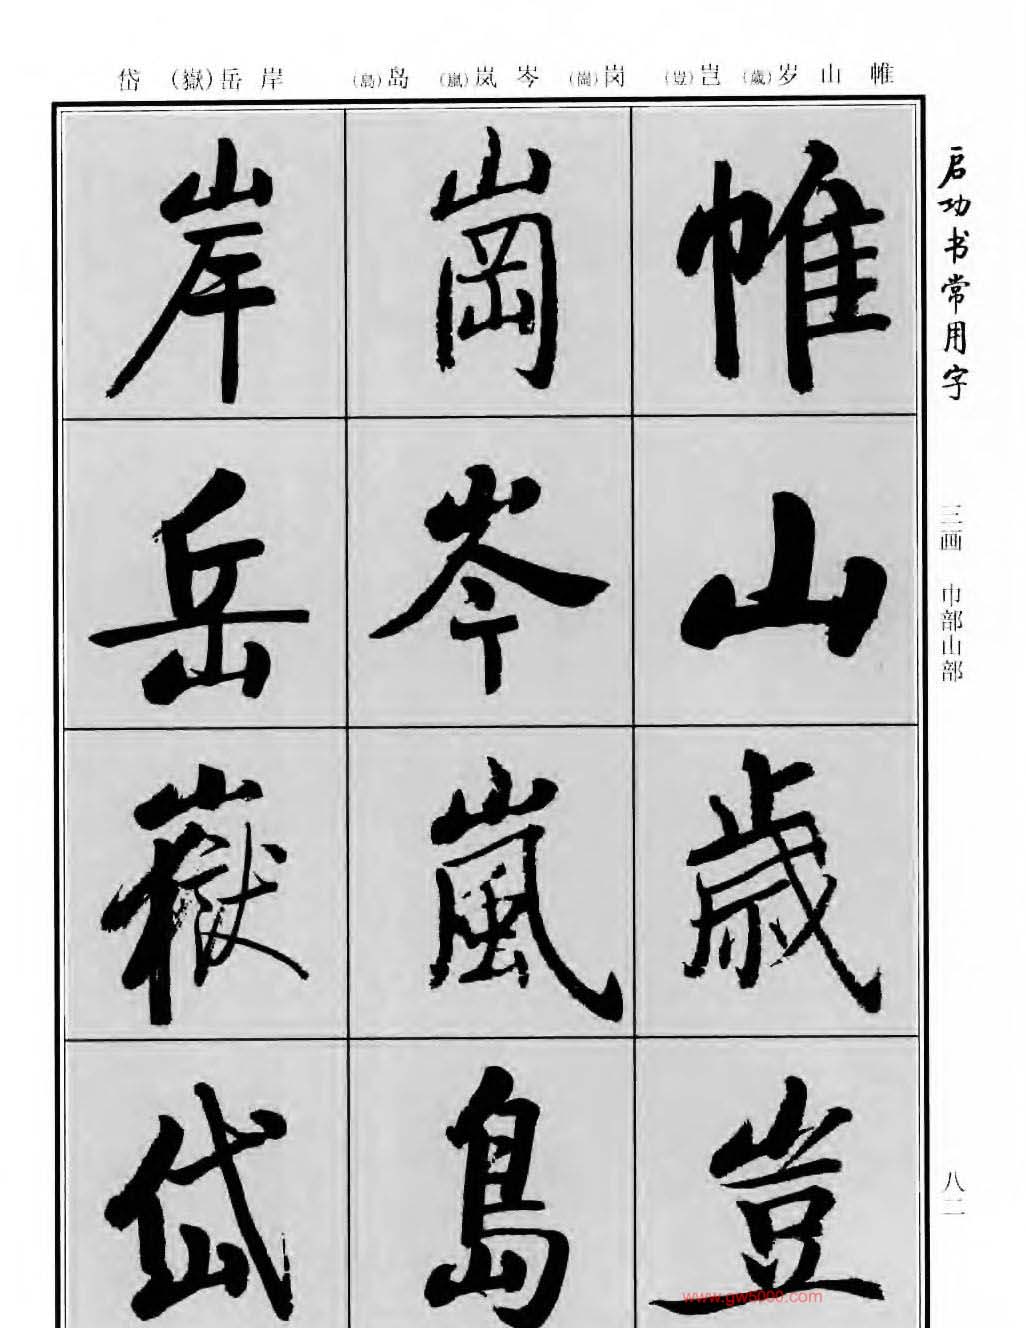 帷 山 岁(歲) 岂(豈) 岗(崗) 岑 岚(嵐) 岛(島) 岸 岳(嶽) 岱
启功书常用字
三画 巾部山部
八二
帷
山
歲
豈
崗
岑
嵐
島
岸
岳
嶽
岱
www.gw5000.com